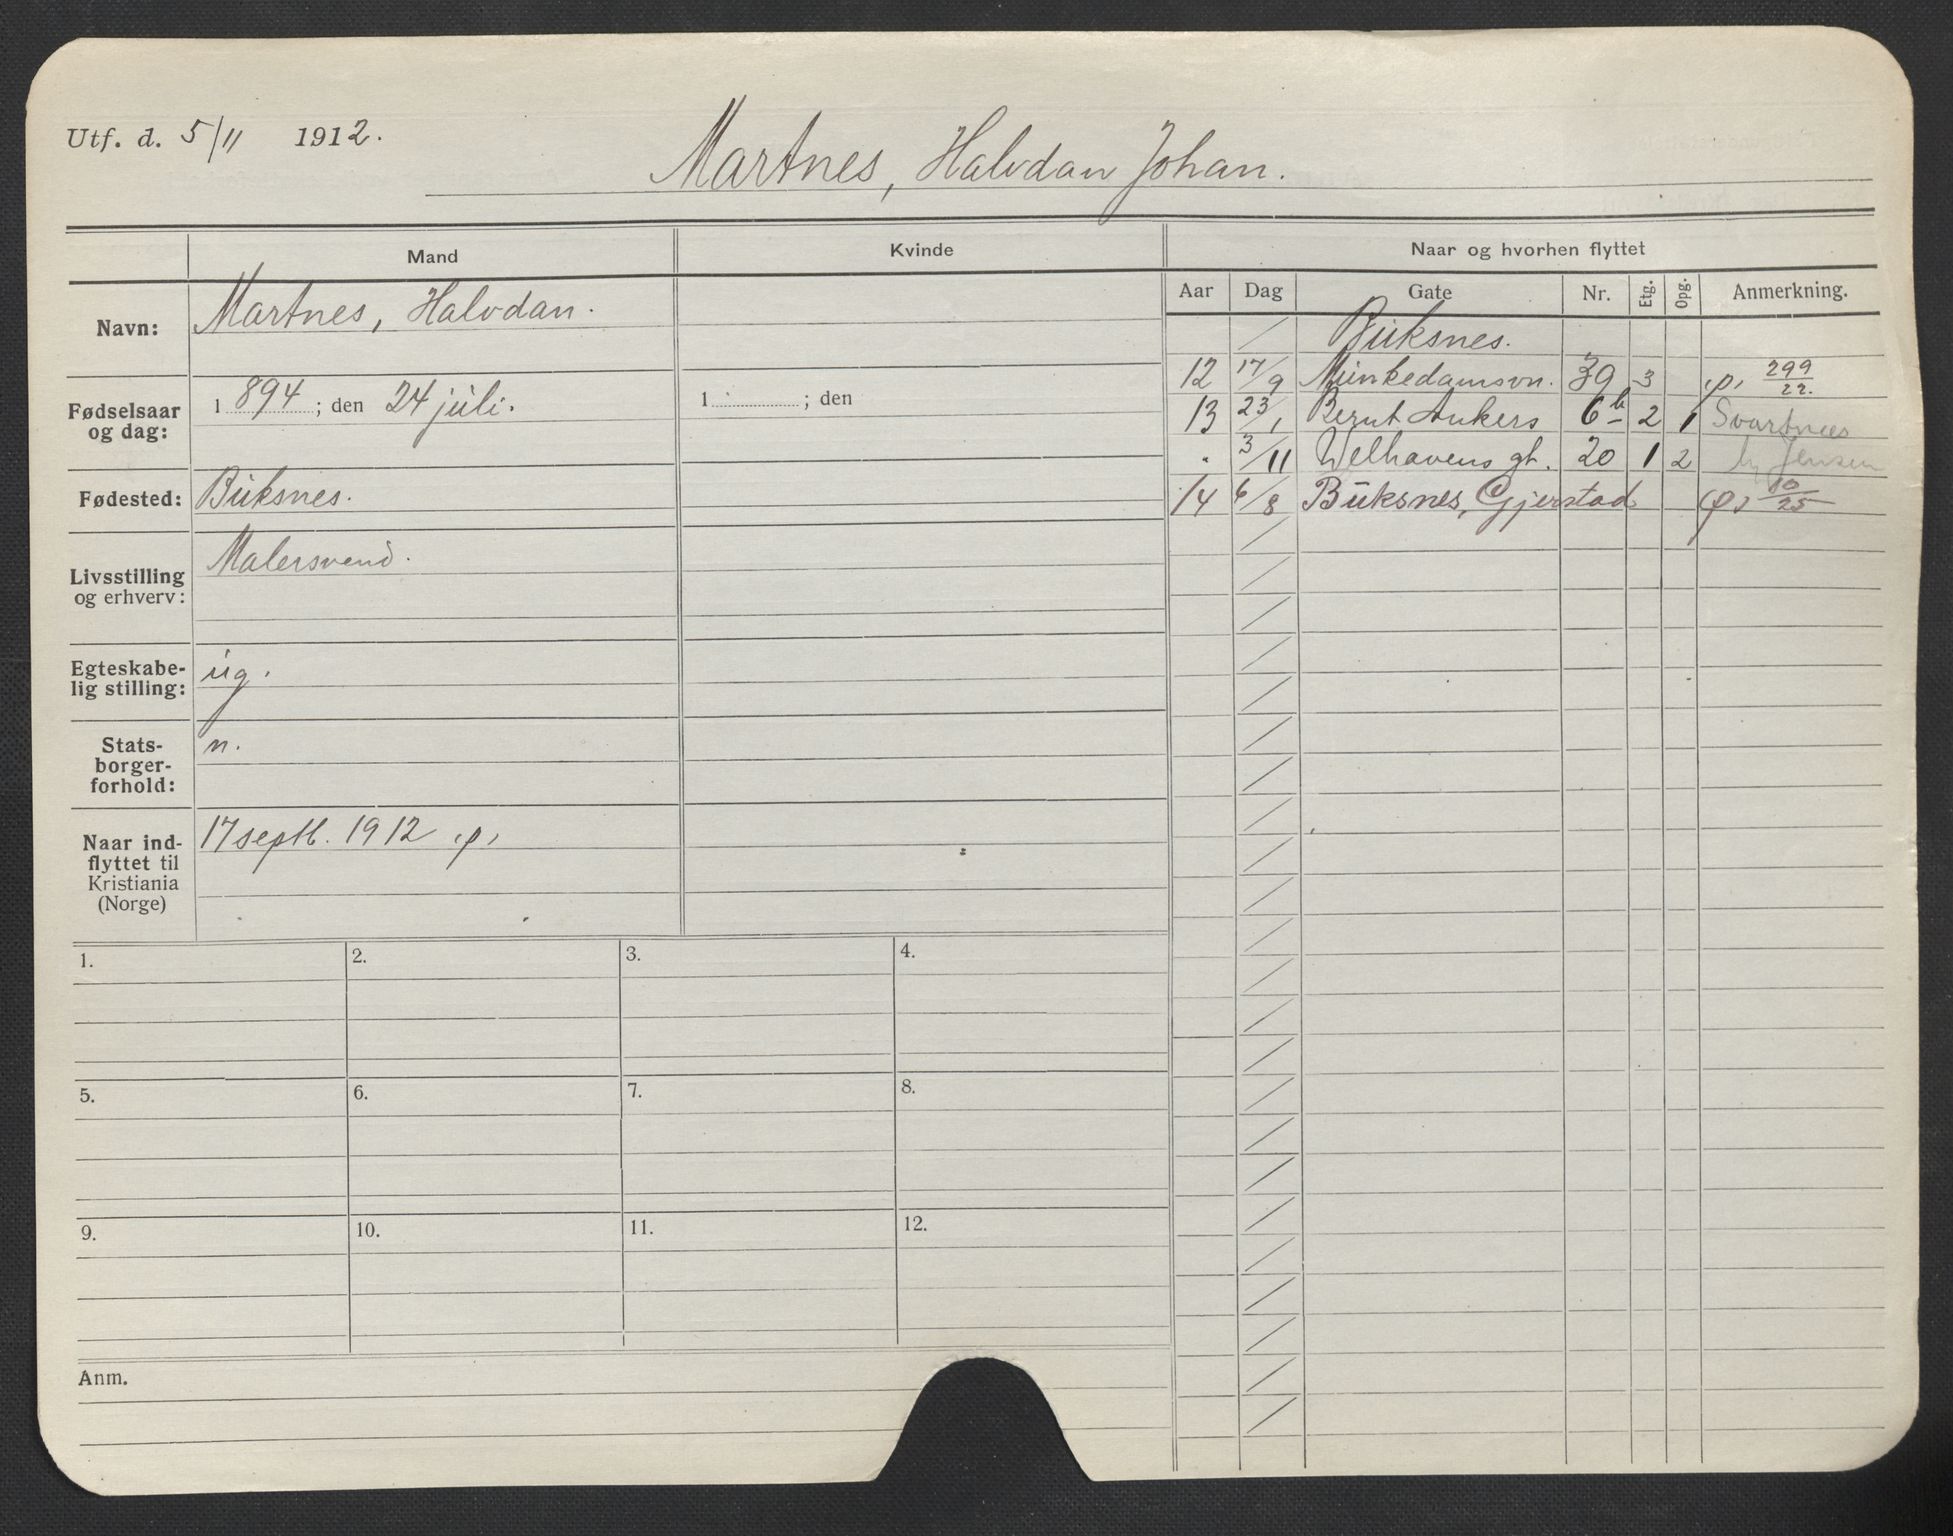 Utf. d. 5/11 1912.
Martnes, Halvdan Johan.
Mand
Kvinde
Naar og hvorhen flyttet
Aar Dag Gate Nr. Etg. Opg. Anmerkning.
Navn: Martnes, Halvdan.
Fødselsaar og dag: 1 894 ; den 24 juli.
1 ; den
Fødested: Buksnes.
Livsstilling og erhverv: Malersvend.
Egteskabe-
lig stilling: ug.
Stats-
borger-
forhold: n.
Naar ind-
flyttet til
Kristiania
(Norge) 17 septb. 1912 p,
Buksnes.
12 17/9 Munkedamsvn. 39 3 p, 299/22.
13 23/1 Bernt Ankers 6b 2 1 Svartnes
3/11 Welhavens gt. 20 1 2 Jensen
14 6/8 Buksnes, Gjerstad p, 10/25
1. 2. 3. 4.
5. 6. 7. 8.
9. 10. 11. 12.
Anm.